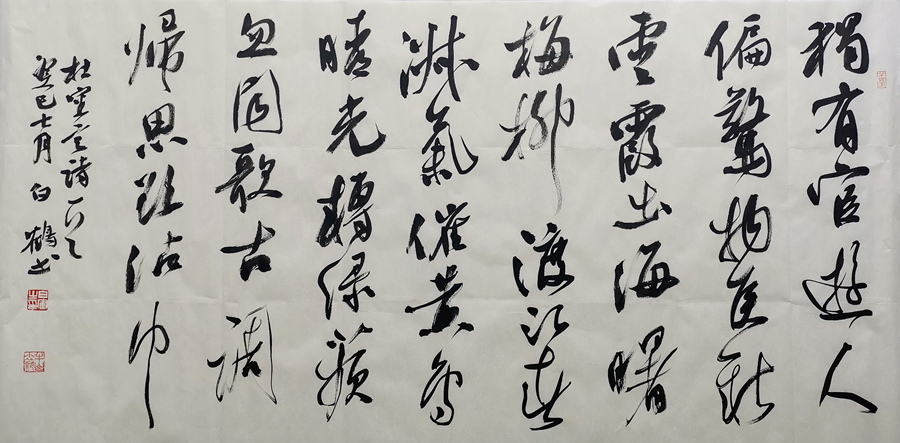 獨有宦遊人
偏驚物候新
雲霞出海曙
梅柳渡江春
淑氣催黃鳥
晴光轉綠蘋
忽聞歌古調
歸思欲沾巾
杜審言詩一首
癸巳七月 白鶴書